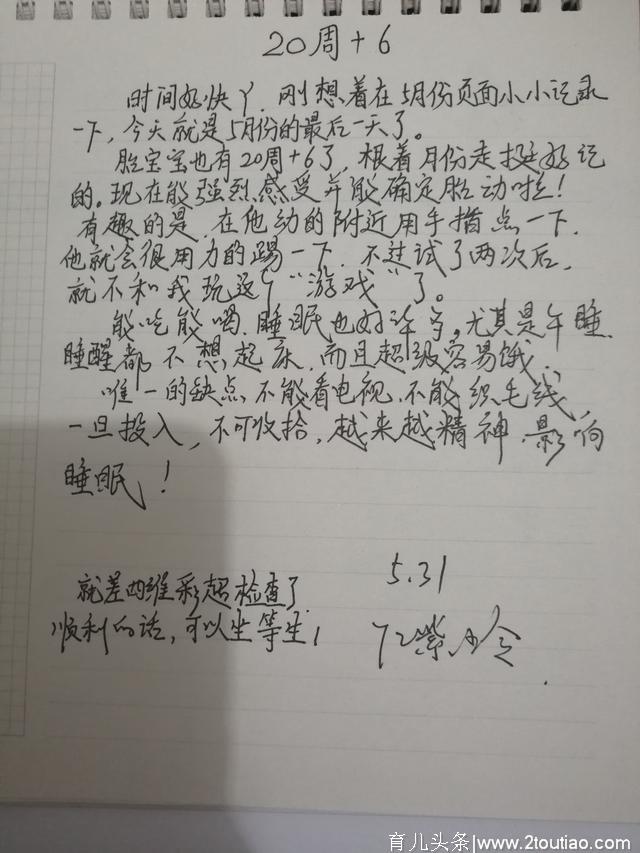 20周+6
时间好快丫，刚想着在5月份页面小小记录
一下，今天就是5月份的最后一天了。
胎宝宝也有20周+6了，根着月份走挺好记
的。现在能强烈感受并能确定胎动啦！
有趣的是，在他动的附近用手指点一下，
他就会很用力的踢一下，不过试了两次后，
就不和我玩这个"游戏"了。
能吃能喝，睡眠也好许多，尤其是午睡，
睡醒都不想起床，而且超级容易饿，
唯一的缺点，不能看电视，不能织毛线，
一旦投入，不可收拾，越来越精神，影响
睡眠！
就差四维彩超检查了，
顺利的话，可以坐等生！
5.31
育儿头条|www.2toutiao.com